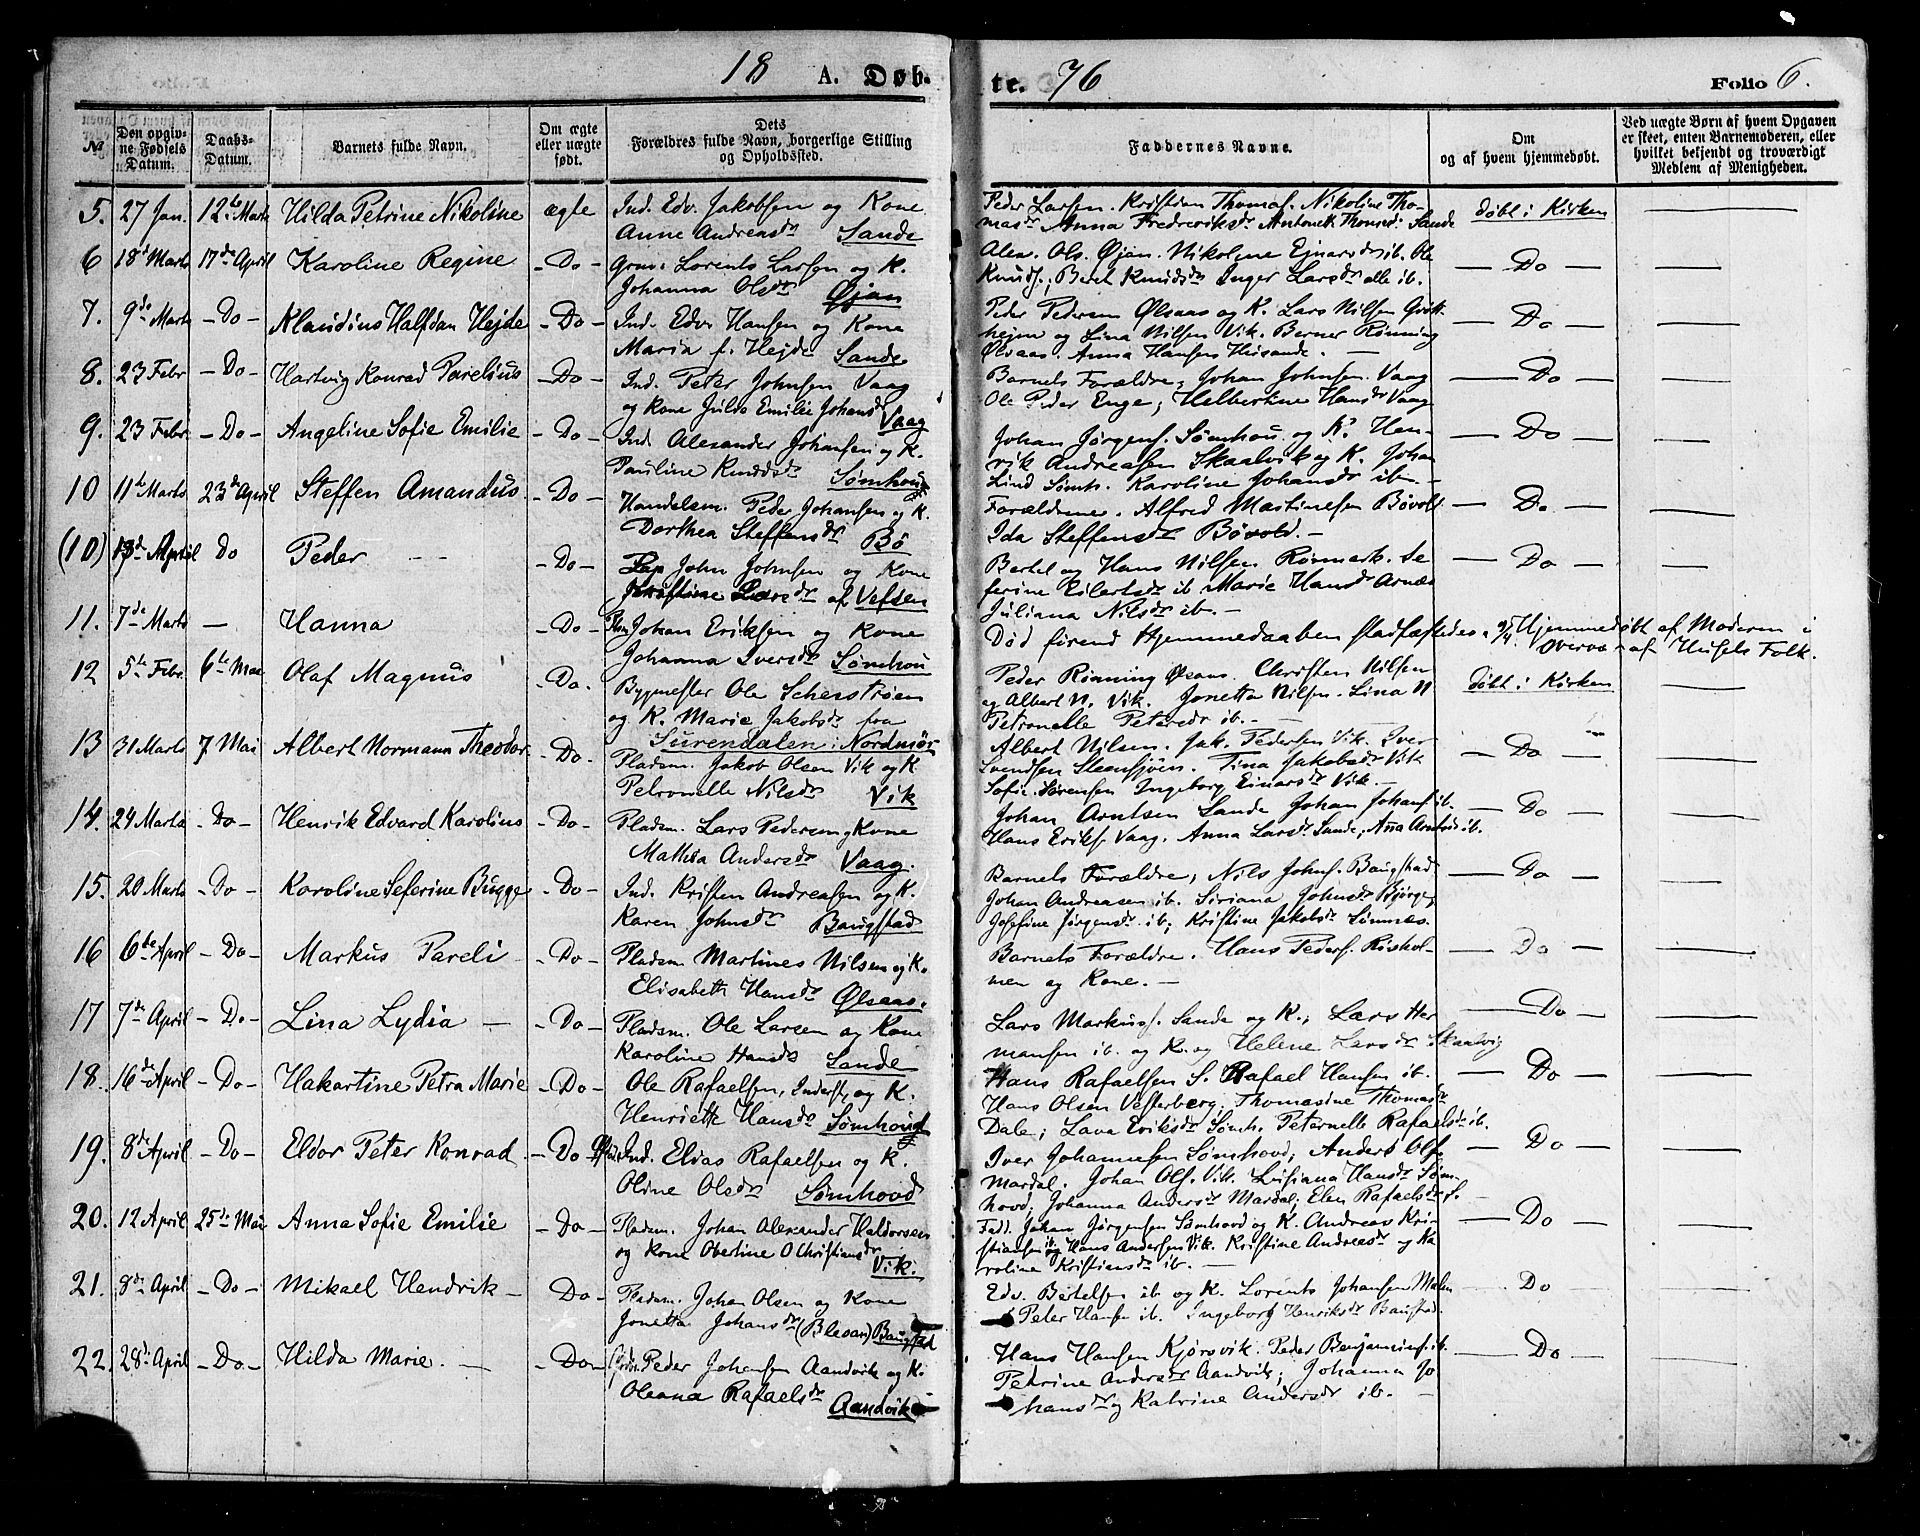 18 A. Døb-
te. 76
Folio 6.
№
Den opgiv-
ne Fødsels
Datum.
Daabs-
Datum.
Barnets fulde Navn.
Om ægte
eller uægte
født.
Dets
Forældres fulde Navn, borgerlige Stilling
og Opholdssted.
Faddernes Navne.
Om
og af hvem hjemmedøbt.
Ved uægte Børn af hvem Opgaven
er skeet, enten Barnemoderen, eller
hvilket bekjendt og troværdigt
Medlem af Menigheden.
5. 27 Jan. 12te Marts Hilda Petrine Nikoline ægte
Ind. Edv. Jakobsen og Kone
Anne Andreasdr Sande
Peder Larsen. Kristian Thomas. Nikoline Tho-
masdr Anna Frederiksdr Sande
døbt i Kirken
6 18de Marts 17de April Karoline Regine - Do -
Lorents Larsen og K.
Johanna Olsdr Øjan
Alex. Ols. Øjan. Nikoline Ejnarsdr ib. Ole
Knuds; Beret Knudsdr Inger Larsdr alle ib.
Do
7. 9de Marts - Do - Klaudius Halfdan Hejde - Do -
Ind. Edv. Hansen og Kone
Maria f. Hejde Sande
Peder Pedersen Ølsaas og K. Lars Nilsen
Lina Nilsen Vik. Berner Rønning
Ølsaas. Anna Hansen
Do
8. 23 Febr - Do - Hartvig Konrad Parelius - Do -
Ind. Peter Johnsen Vaag
og Kone Emilie Johansdr Vaag
Barnets Forældre; Johan Johnsen Vaag
Ole Peder Enge; Helbertine Hansdr Vaag
Do
9. 23 Febr. - Do - Angeline Sofie Emilie - Do -
Ind. Alexander Johansen og K.
Pauline Knudsdr Sømhou
Johan Jørgens. Sømhou og K. Hen-
rik Andreasen Skaalvik og K. Johan
Lind Sømh. Karoline Johansdr ib.
Do
10 11te Marts 23de April Steffen Amandus - Do -
Handelsm. Peder Johansen og K.
Dorthea Steffensdr Bø
Forældrene. Alfred Martinesen Bøvold
Ida Steffensdr Bøvold.
Do
(10) 13de April Do Peder - Do -
Lap John Johnsen og Kone
Kristine Larsdr af Vefsen
Bertel og Hans Nilsen Rønmark. Se-
ferine Eilertsdr ib Marie Hansdr Arnæs
Juliana Nilsdr ib.
Do
11. 7de Marts — Hanna - Do -
Johan Eriksen og Kone
Johanna Iversdr Sømhou
Død førend Hjemmedaaben stadfæstedes Hjemmedøbt af Moderen i
Overvær af Husets Folk.
12 5te Febr. 6te Mai Olaf Magnus - Do -
Bygmester Ole
og K. Marie Jakobsdr fra
Surendalen i Nordmør
Peder Rønning Øsaas. Christen Nilsen
og Albert N. Vik. Jonetta Nilsen. Lina N
Petronelle Petersdr ib.
døbt i Kirken
13 31 Marts 7 Mai Albert Normann Theodor - Do -
Pladsm. Jakob Olsen Vik og K
Petronelle Nilsdr Vik
Albert Nilsen. Jak. Pedersen Vik. Iver
Svendsen Steensjøen. Tina Jakobsdr Vik
Sofie Sørensen Ingeborg Einarsdr Vik
Do
14. 24 Marts - Do - Henrik Edvard Karolius - Do -
Pladsm. Lars Pedersen og Kone
Mathea Andersdr Vaag.
Johan Arntsen Sande Johan Johans ib.
Hans Eriks. Vaag. Anna Larsdr Sande; Ana ib.
Do
15. 20 Marts - Do - Karoline Seferine Bugge - Do -
Ind. Kristen Andreasen og K.
Karen Johnsdr Baugstad
Barnets Forældre, Nils Johns. Baugstad
Johan Andreasen ib. Siriana Johnsdr Bjørge,
Josefine Jørgensdr ib; Kristine Jakobsdr Sømnæs.
Do
16 6te April - Do - Markus Pareli - Do -
Pladsm Martines Nilsen og K.
Elisabeth Hansdr Ølsaas.
Barnets Forældre. Hans Peders. Risshol-
men og Kone.
Do
17 7de April - Do - Lina Lydia - Do -
Pladsm. Ole Larsen og Kone
Karoline Hansdr Sande
Lars Markuss. Sande og K.; Lars Her
mansen ib. og K. og Helene Larsdr Skaalvig
Do
18. 16de April - Do - Hakartine Petra Marie - Do -
Ole Rafaelsen, Inderst, og K.
Henriette Hansdr Sømhovd
Hans Rafaelsen S. Rafael Hansen ib.
Hans Olsen Vesterberg; Thomasine Thomasdr
Dale; Lava Eriksdr Sømh. Peternelle Rafaelsdr ib.
Do
19. 8de April - Do - Eldor Peter Konrad - Do
Ind. Elias Rafaelsen og K.
Oline Olsdr Sømhovd
Iver Johannesen Sømhovd; Anders Ols.
Mardal. Johan Ols. Vik. Lusiana Hansdr Søm-
hovd; Johanna Andersdr Mardal; Elen Rafaelsdr S.
Do
20. 12 April 25de Mai Anna Sofie Emilie - Do -
Pladsm. Johan Alexander Haldorsen
og Kone Obertine O Christiansdr
Vik.
Fadd. Johan Jørgensen Sømhovd og K. Andreas Kri-
stiansen ib. og Hans Andersen Vik. Kristine Andreasdr og Ka
roline Kristiansdr ib.
Do
21. 8de April - Do - Mikael Hendrik - Do -
Pladsm. Johan Olsen og Kone
Jonetta Johansdr (Blesan) Baugstad
Edv. Bertelsen ib og K. Lorents Johansen
Peter Hansen ib. Ingeborg Henriksdr Baugstad.
Do
22. 28de April - Do - Hilda Marie - Do -
Peder Johansen Aandvik og K.
Oleana Rafaelsdr
Aandvik
Hans Hansen Kjørsvik. Peder Benjamins. ib.
Petrine Andersdr Aandvik; Johanna Jo
hansdr og Katrine Andersdr ib.
Do